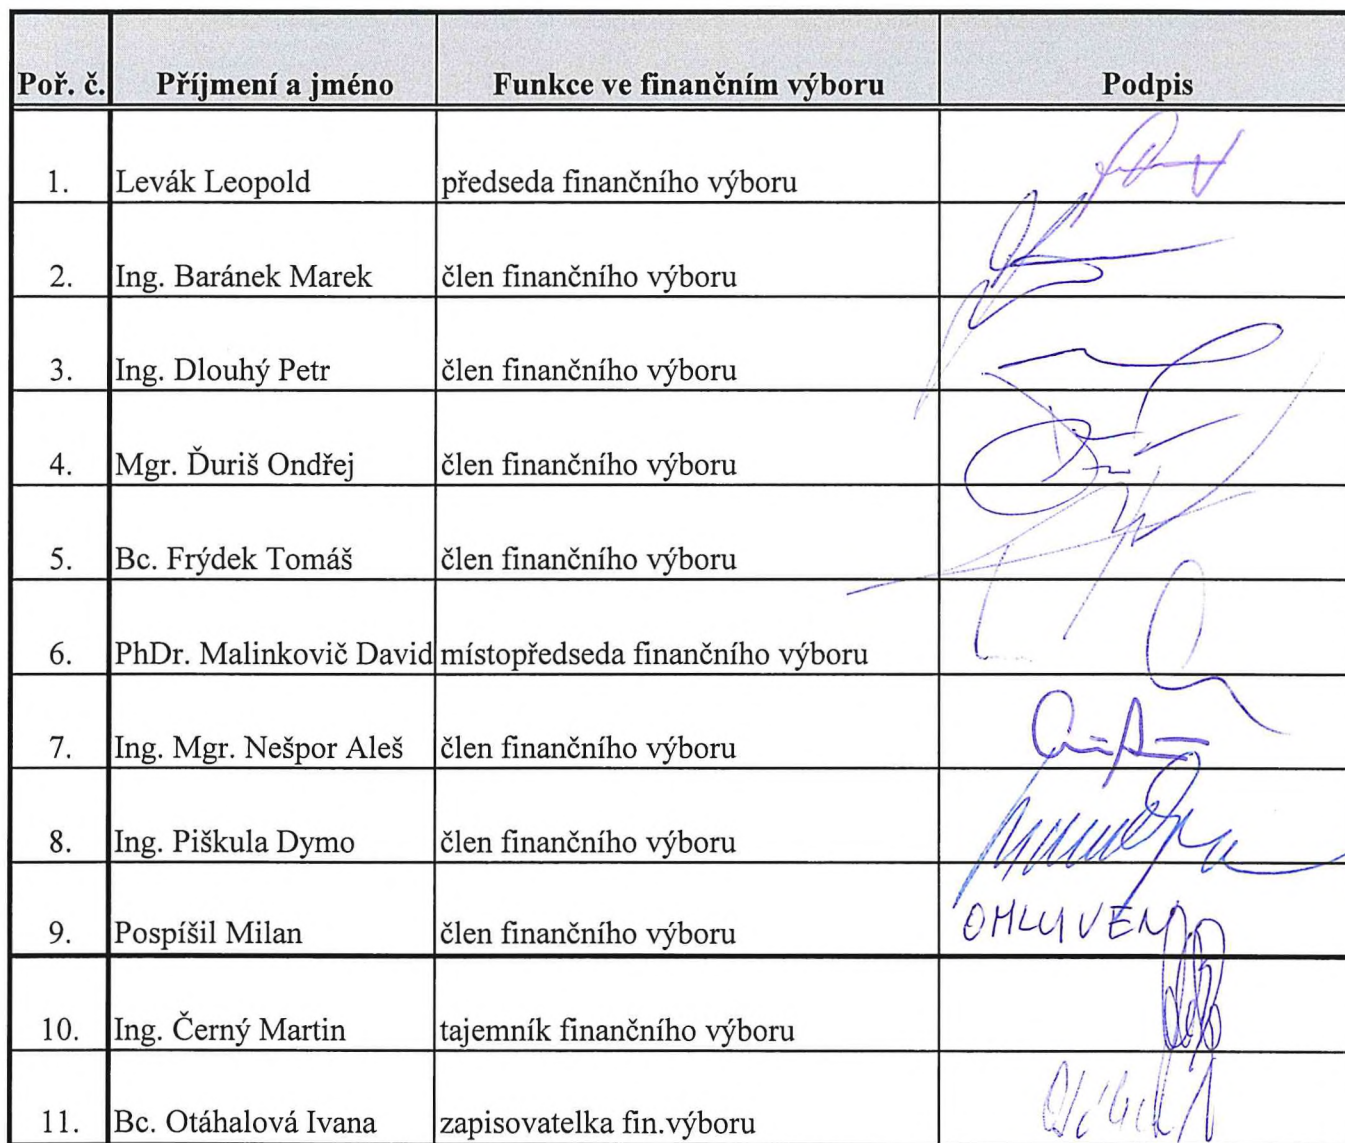 Poř. č. Příjmení a jméno Funkce ve finančním výboru Podpis
1. Levák Leopold předseda finančního výboru
2. Ing. Baránek Marek člen finančního výboru
3. Ing. Dlouhý Petr člen finančního výboru
4. Mgr. Ďuriš Ondřej člen finančního výboru
5. Bc. Frýdek Tomáš člen finančního výboru
6. PhDr. Malinkovič David místopředseda finančního výboru
7. Ing. Mgr. Nešpor Aleš člen finančního výboru
8. Ing. Piškula Dymo člen finančního výboru
9. Pospíšil Milan člen finančního výboru OMLUVEN
10. Ing. Černý Martin tajemník finančního výboru
11. Bc. Otáhalová Ivana zapisovatelka fin.výboru